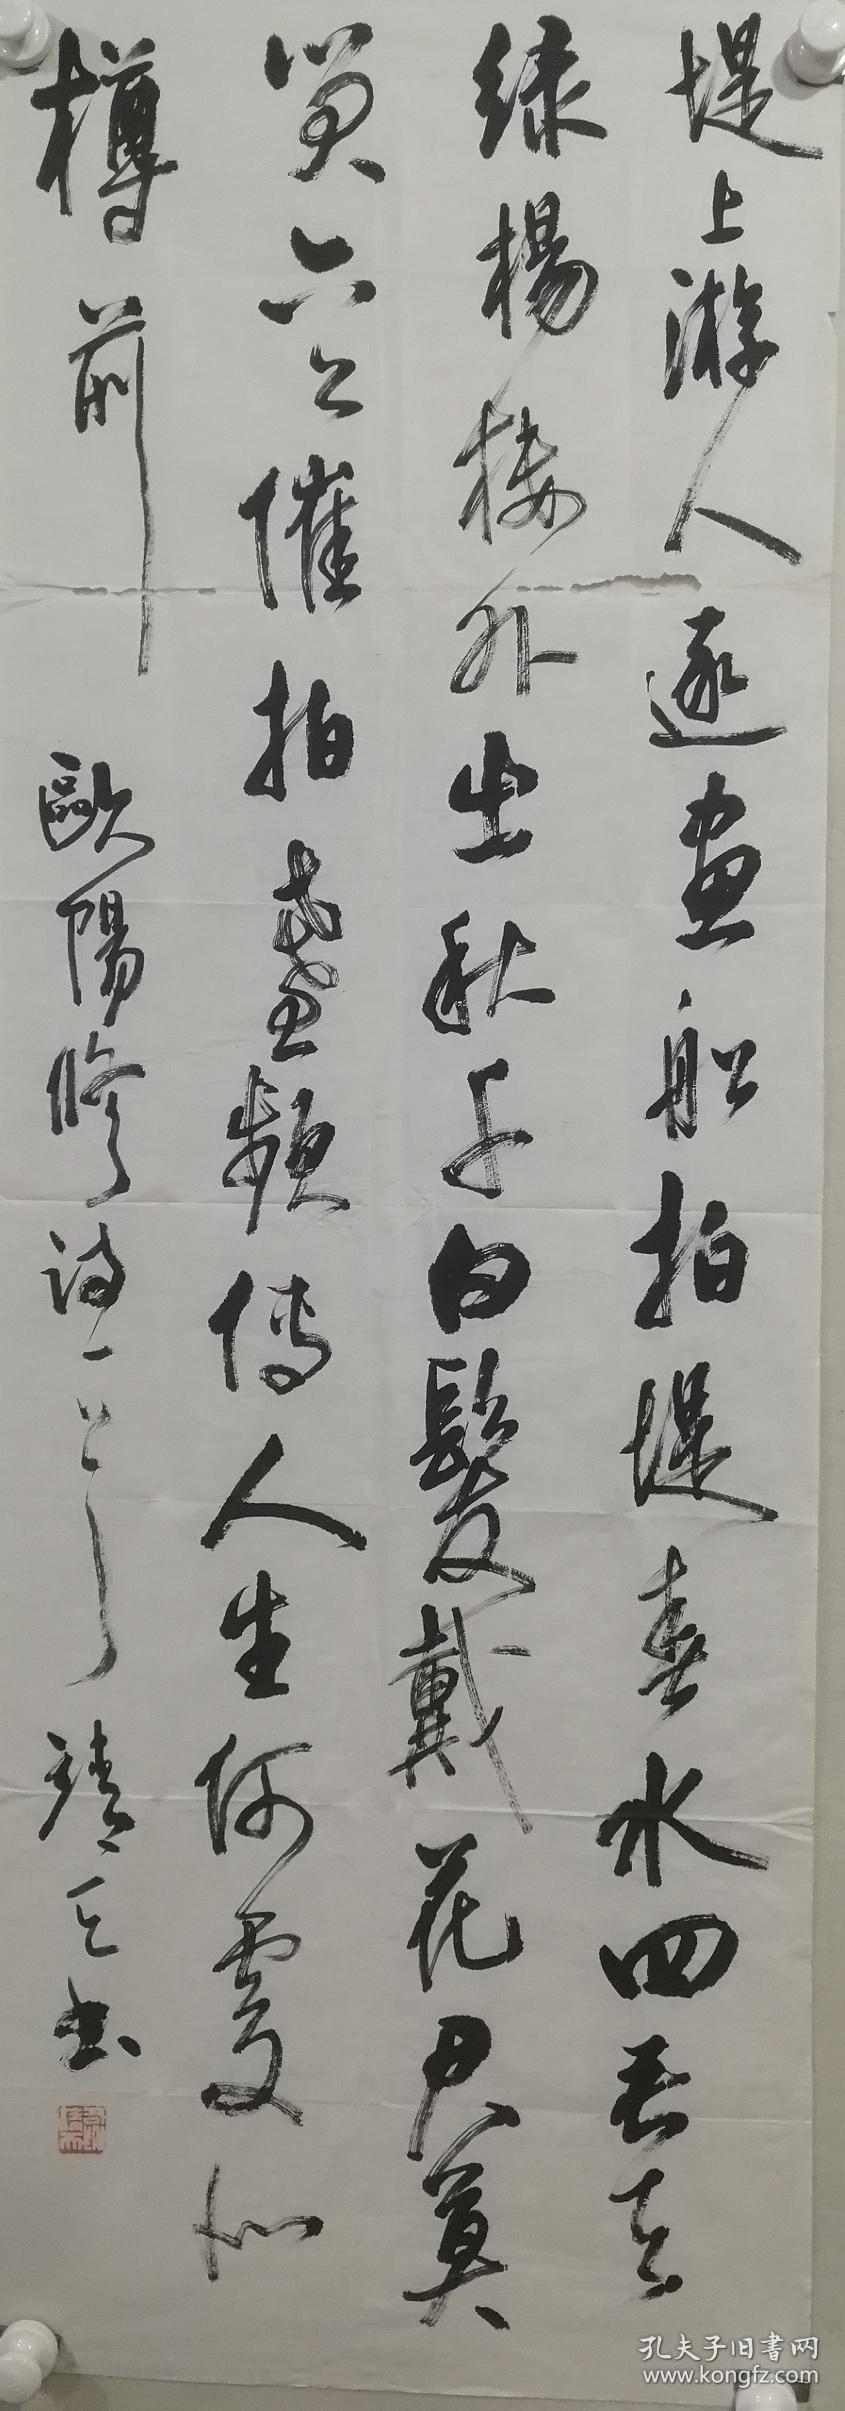 堤上游人逐画船拍堤春水四垂天
绿楊楼外出秋千白髮戴花君莫
笑六幺催拍盏频傳人生何處似
樽前
歐陽修詩一首
孔夫子旧書网
www.kongfz.com